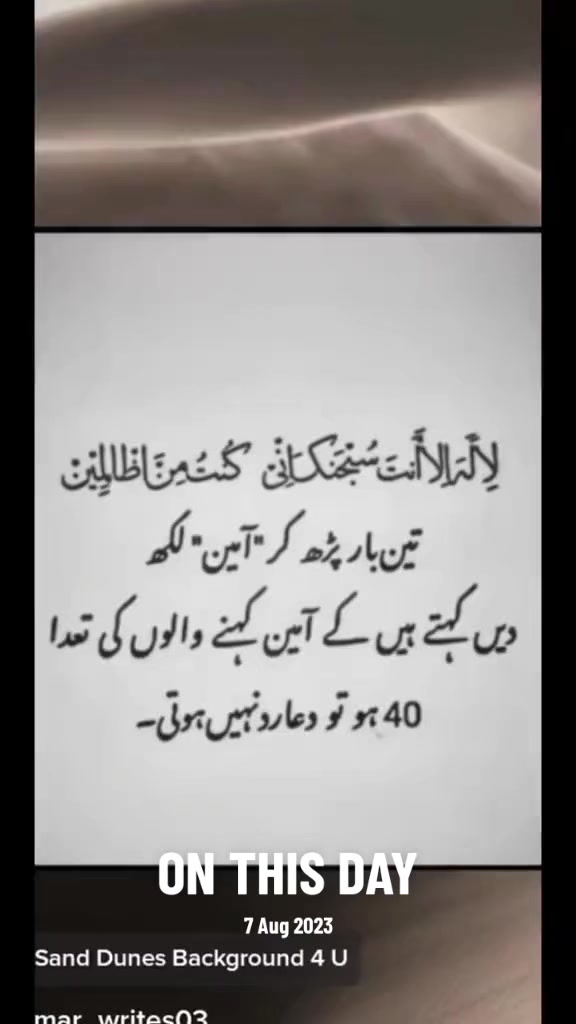 لِاَّلہَ اِلاَّ أَنتَ سُبْحَنَكَ اِنِّیْ كُنتُ مِنَ اظَالِمِیْنْ
تین بار پڑھ کر "آمین" لکھ
دیں کہتے ہیں کے آمین کہنے والوں کی تعدا
40 ہو تو دعا رد نہیں ہوتی۔
ON THIS DAY
7 Aug 2023
Sand Dunes Background 4 U
mar_writes03